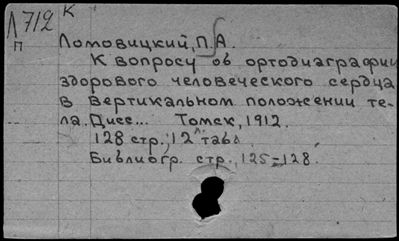 Л 712 К
П
Ломовицкий, П.А.
К вопросу об ортодиаграфии
здорового человеческого сердца
в вертикальном положении те-
ла. Дисс... Томск, 1912.
128 стр., 12 л табл
Библиогр. стр., 125=128.